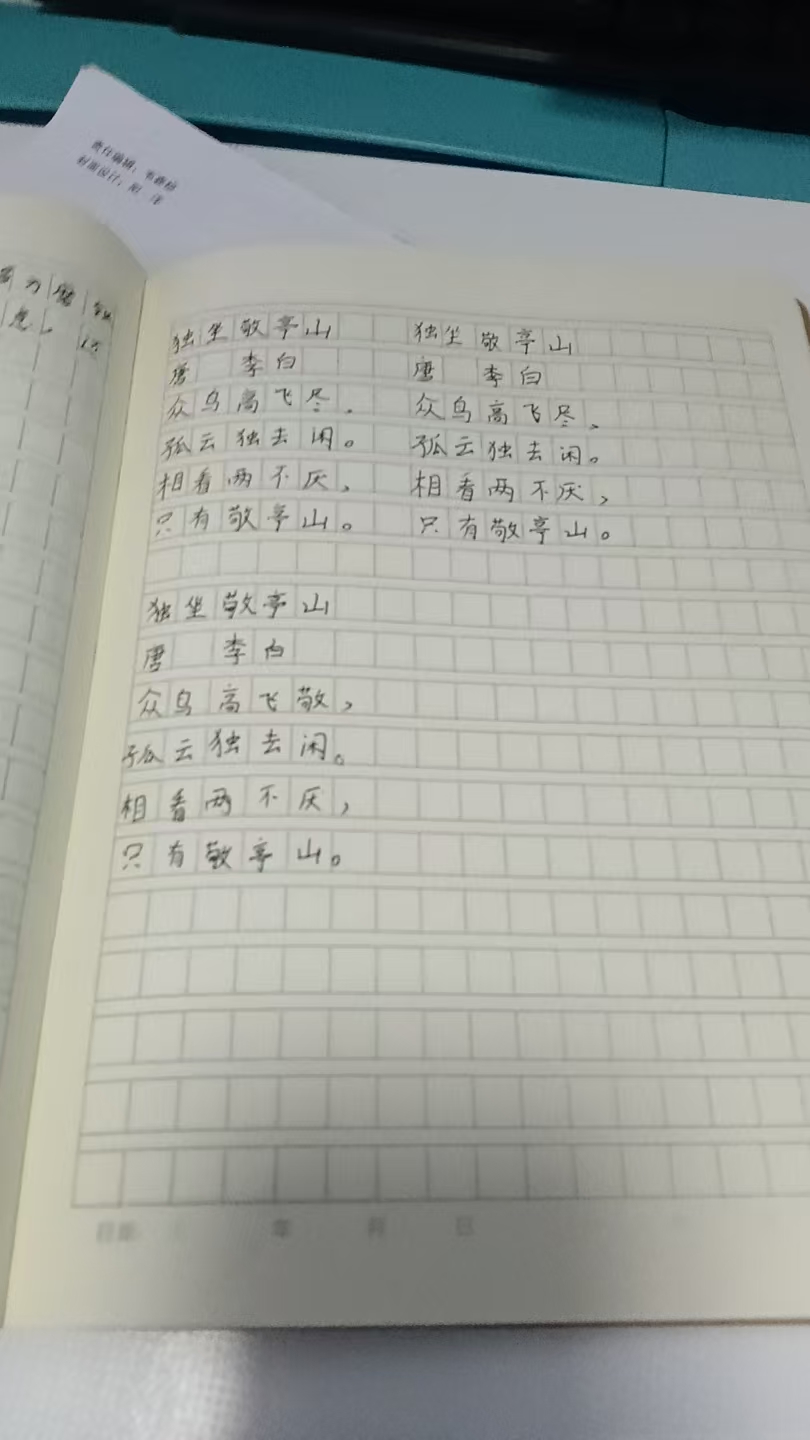 责任编辑：
封面设计：
独坐敬亭山
唐 李白
众鸟高飞尽.
孤云独去闲。
相看两不厌,
只有敬亭山。
独坐敬亭山
唐 李白
众鸟高飞尽、
孤云独去闲。
相看两不厌,
只有敬亭山。
独坐敬亭山
唐 李白
众鸟高飞敬,
孤云独去闲。
相看两不厌,
只有敬亭山。
年 月 日